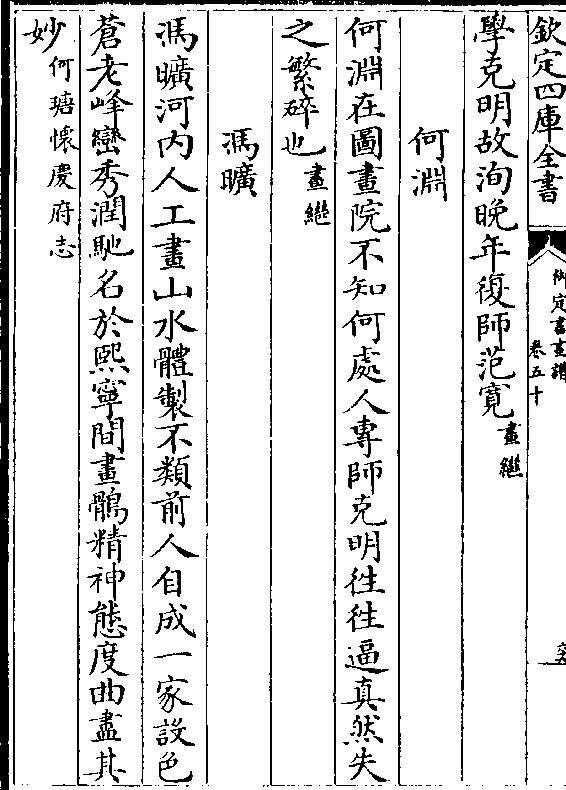 欽定四庫全書
御定書畫譜
卷五十
學克明故洵晚年復師范寛畫繼
何淵
何淵在圖畫院不知何處人專師克明徃徃逼真然失
之繁碎也畫繼
馮曠
馮曠河内人工畫山水體製不類前人自成一家設色
蒼老峰巒秀潤馳名於熙寧間畫鶻精神態度曲盡其
妙何瑭懷慶府志